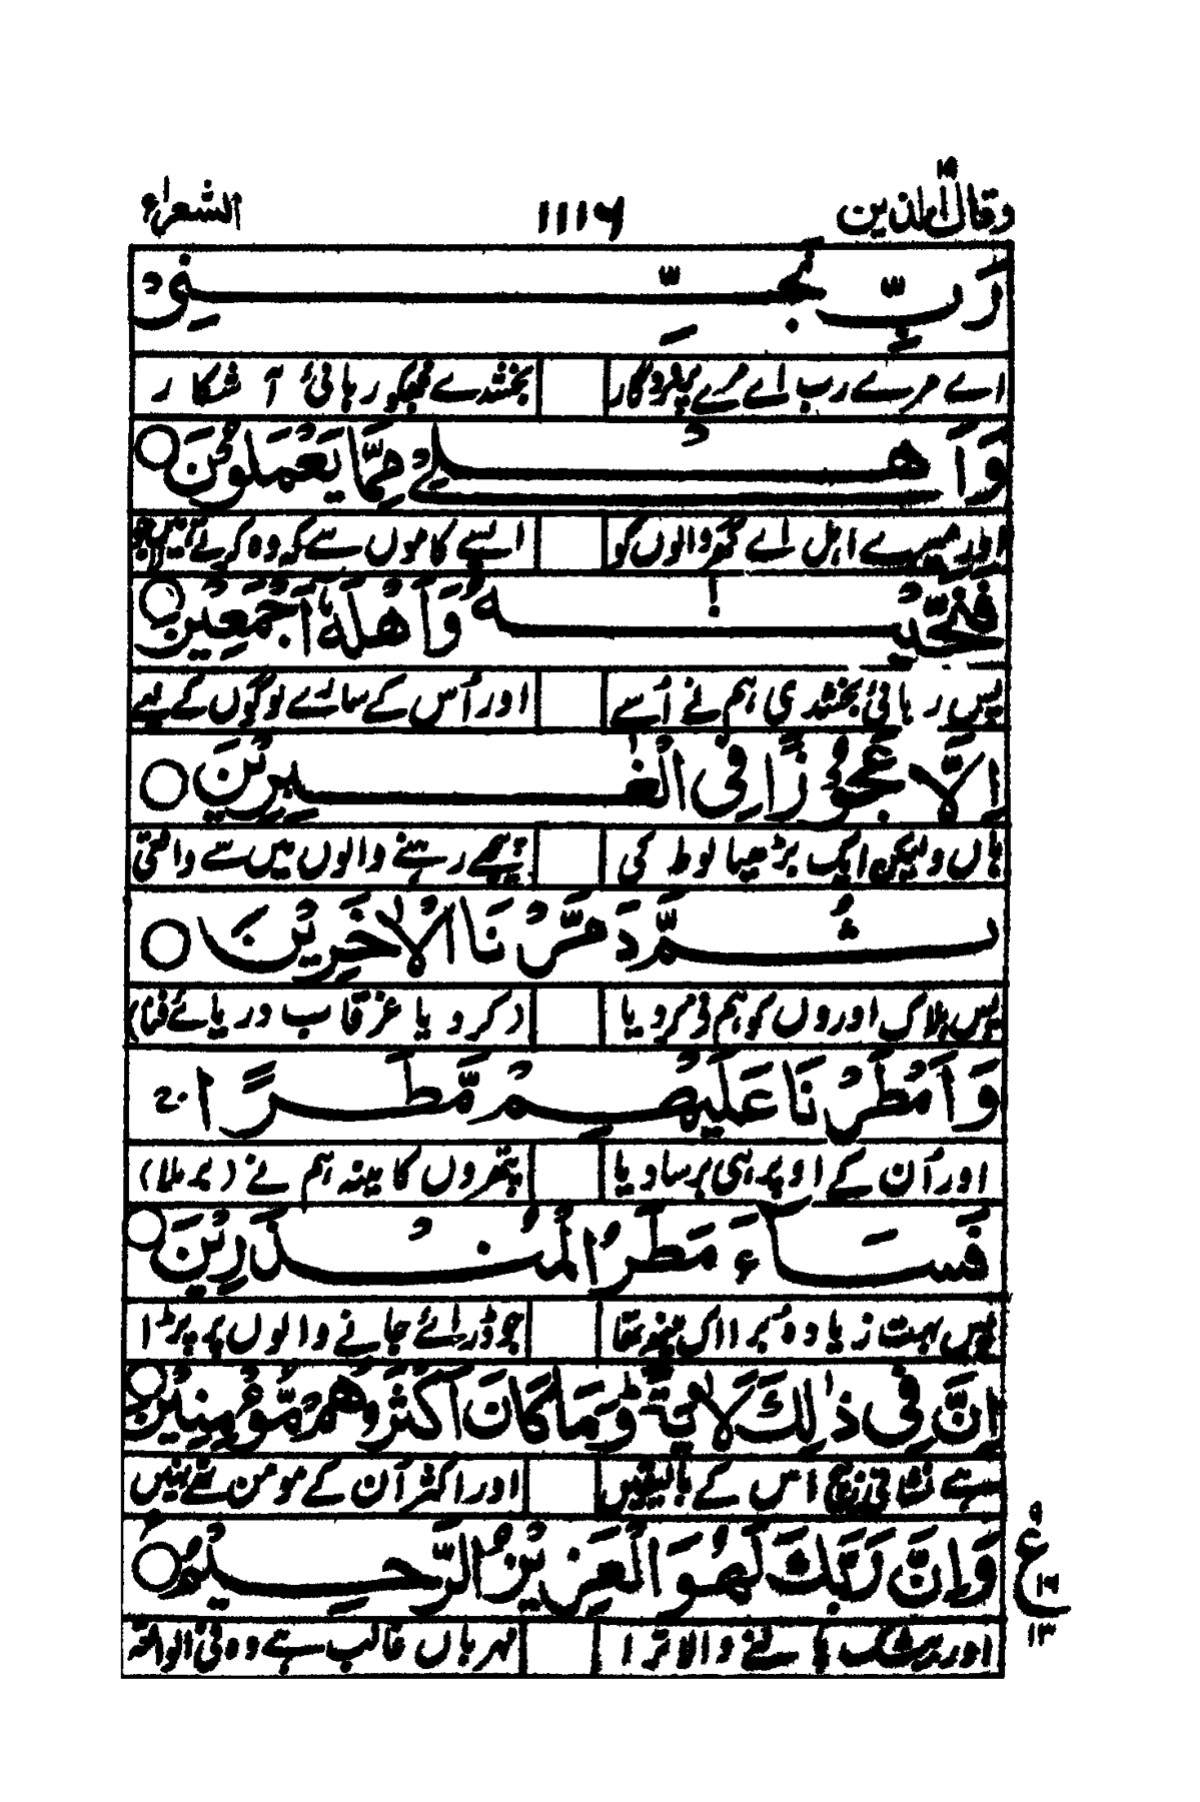 وقال الذین ۱۹ ۱۱۱۶ الشعراء
رَبِّ نَجِّنِیْ
اے مرے رب اے مرے پروردگار بخشدے مجھکو رہائی آشکار
وَاَهْلِیْ مِمَّا یَعْمَلُوْنَ
اور میرے اہل اے گھر والوں کو ایسے کاموں سے کہ وہ کرتے ہیں جو
فَنَجَّیْنٰهُ وَاَهْلَهٗۤ اَجْمَعِیْنَ
پس رہائی بخشدی ہم نے اُسے اور اُس کے سارے لوگوں کے لیے
اِلَّا عَجُوْزًا فِی الْغٰبِرِیْنَ
ہاں ولیکن ایک بڑھیا لوط کی پیچھے رہنے والوں میں سے واقعی
ثُمَّ دَمَّرْنَا الْاٰخَرِیْنَ
پس ہلاک اوروں کو ہم نے کر دیا (کر دیا غرقاب دریائے فنا)
وَاَمْطَرْنَا عَلَیْهِمْ مَّطَرًا ج
اور اُن کے اوپر ہی برسا دیا پتھروں کا مینہ ہم نے (برملا)
فَسَآءَ مَطَرُ الْمُنْذَرِیْنَ
پس بہت زیادہ برا اک مینہ تھا جو ڈرائے جانے والوں پر پڑا
اِنَّ فِیْ ذٰلِکَ لَاٰیَةً وَمَا کَانَ اَکْثَرُهُمْ مُّؤْمِنِیْنَ
ہے نشانی بیچ اس کے بالیقیں اور اکثر اُن کے مومن تھے نہیں
وَاِنَّ رَبَّکَ لَهُوَ الْعَزِیْزُ الرَّحِیْمُ
اور بیشک پالنے والا ترا مہرباں غالب ہے وہ فی الواقعہ
۹ ع ۱۶ ۱۳